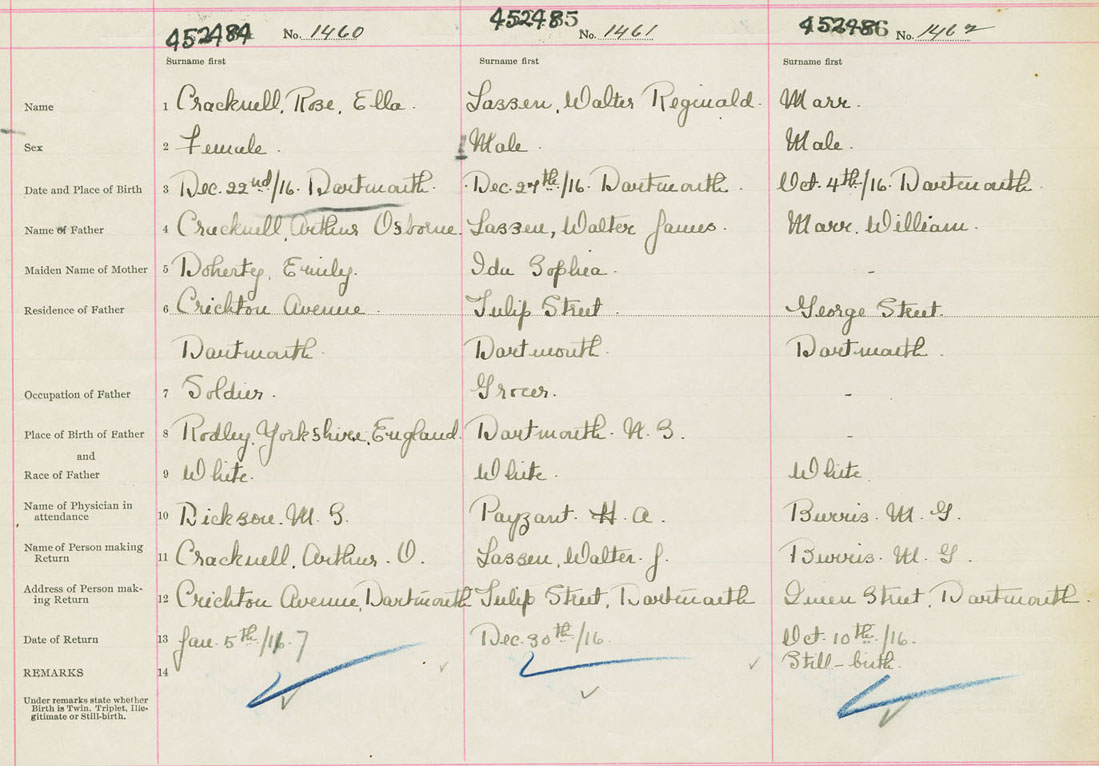 452484 No. 1460 452485 No. 1461 452486 No. 1462
Surname first Surname first Surname first
Name 1 Cracknell, Rose, Ella. Lassen, Walter Reginald. Marr.
Sex 2 Female. Male. Male.
Date and Place of Birth 3 Dec. 22nd/16. Dartmouth. Dec. 27th/16. Dartmouth. Oct. 4th/16. Dartmouth.
Name of Father 4 Cracknell, Arthur Osborne. Lassen, Walter James. Marr, William.
Maiden Name of Mother 5 Doherty, Emily. Ida Sophia. -
Residence of Father 6 Crichton Avenue. Tulip Street. George Street.
Dartmouth. Dartmouth. Dartmouth.
Occupation of Father 7 Soldier. Grocer. -
Place of Birth of Father 8 Rodley, Yorkshire, England. Dartmouth. N. S. -
and
Race of Father 9 White. White. White.
Name of Physician in
attendance 10 Dickson. M. S. Payzant. H. A. Burris. M. G.
Name of Person making
Return 11 Cracknell, Arthur. O. Lassen, Walter. J. Burris. M. G.
Address of Person mak-
ing Return 12 Crichton Avenue, Dartmouth Tulip Street, Dartmouth Queen Street, Dartmouth.
Date of Return 13 Jan. 5th/16. 7 Dec. 30th/16. Oct. 10th/16.
Still-birth.
REMARKS 14
Under remarks state whether
Birth is Twin, Triplet, Ille-
gitimate or Still-birth.